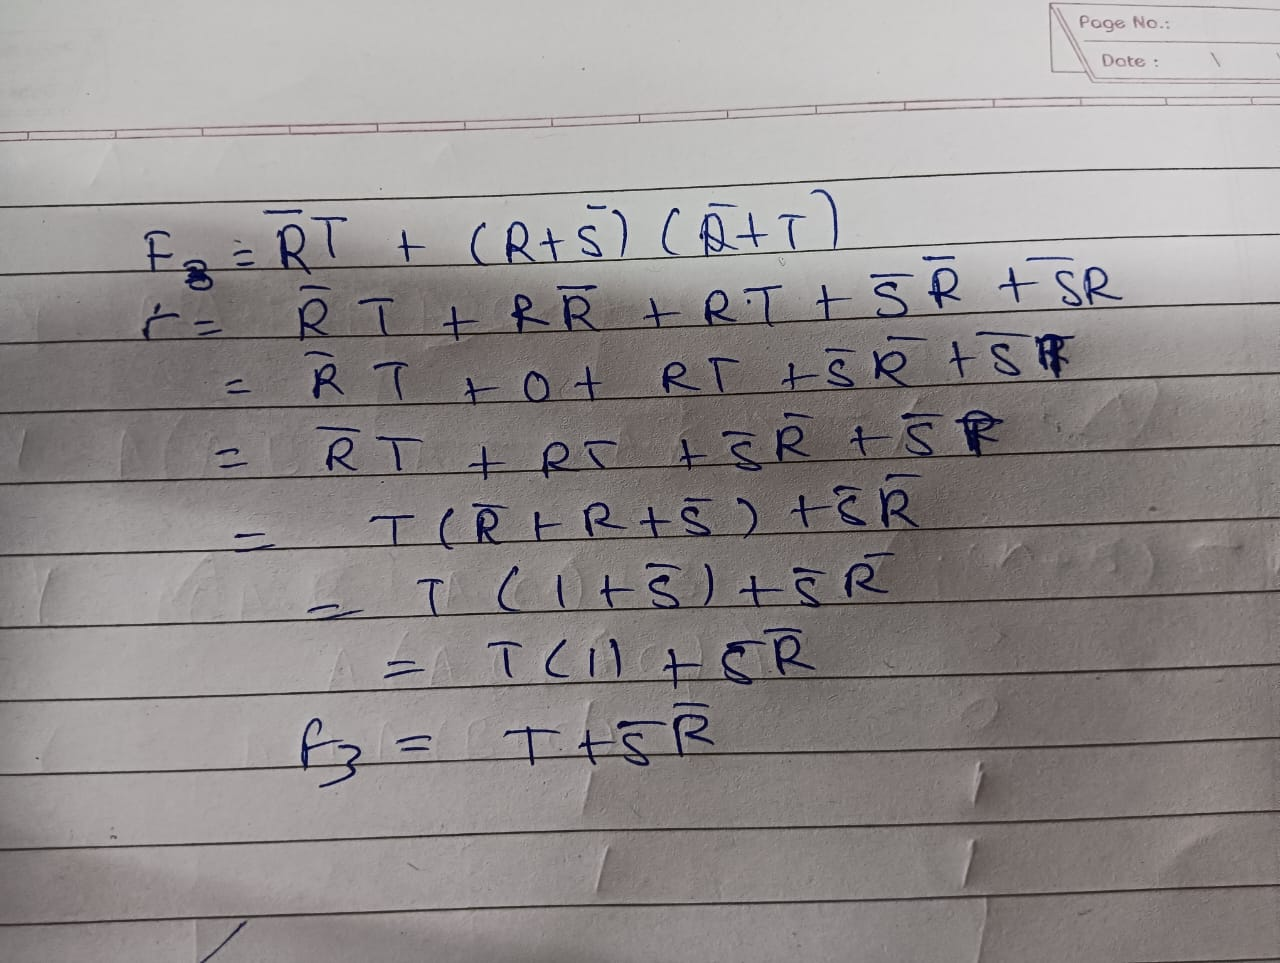 Page No.:
Date :
F₃ = R̅T + (R+S̅) (R̅+T)
r = R̅ T + RR̅ + R·T + S̅ R̅ + S̅R
= R̅ T + 0 + RT + S̅ R̅ + S̅
= R̅ T + RT + S̅ R̅ + S̅
= T (R̅ + R + S̅) + S̅ R̅
= T (1 + S̅) + S̅ R̅
= T (1) + S̅ R̅
f₃ = T + S̅ R̅